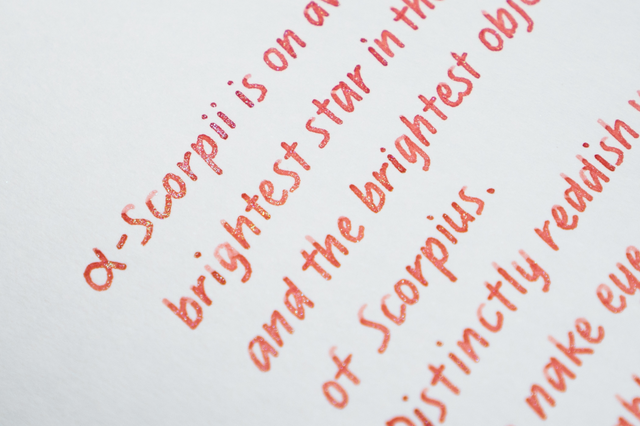 α-Scorpii is on
brightest star in the
and the brightest
of Scorpius.
Distinctly reddish
make